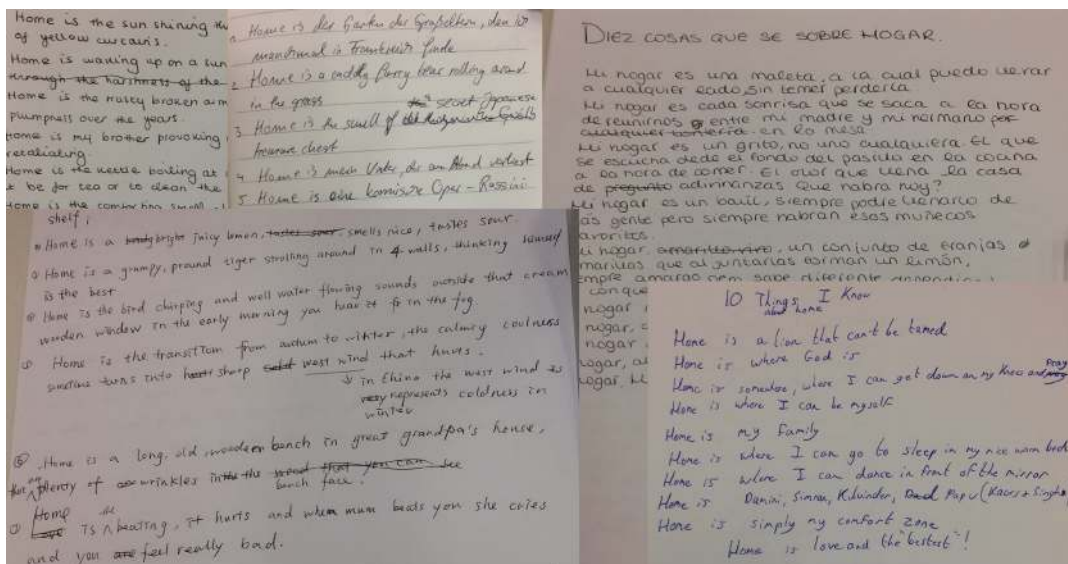 Home is the sun shining
of yellow curtains.
Home is waking up on a sun
through the harshness of the
Home is the musty broken arm
plumpness over the years.
Home is my brother provoking
retaliating
Home is the kettle boiling at
t be for tea or to clean the
Home is the comforting smell
Home is der Garten der Großeltern, den ich
manchmal in Frankreich finde
2. Home is a cuddly furry bear rolling around
in the grass
secret Japanese
3. Home is the smell of
treasure chest
4. Home is mein Vater, der am Abend vorliest
5. Home is eine komische Oper - Rossini
DIEZ COSAS QUE SE SOBRE HOGAR.
Mi hogar es una maleta, a la cual puedo llevar
a cualquier lado, sin temer perderla.
Mi hogar es cada sonrisa que se saca a la hora
de reunirnos entre mi madre y mi hermano por
cualquier tontería en la mesa.
Mi hogar es un grito, no uno cualquiera. El que
se escucha dede el fondo del pasillo en la cocina
a la hora de comer. El olor que llena la casa
de pregunto adivinanzas que habra hoy?
Mi hogar es un baúl, siempre podré llenarlo de
más gente pero siempre habran esos muñecos
favoritos.
Mi hogar, amarillo vivo, un conjunto de granjas
amarillas que al juntarlas forman un limón,
empre amargo pero sabe diferente
con que
hogar
hogar, c
hogar
hogar, al
hogar, M
shelf;
Home is a bright juicy lemon, tastes sour, smells nice, tastes sour.
Home is a grumpy, proud tiger strolling around in 4 walls, thinking himself
is the best
Home is the bird chirping and well water flowing sounds outside that cream
wooden window in the early morning you hear it in the fog.
Home is the transition from autumn to winter, the calming coolness
sometime turns into sharp west wind that hurts.
↓ in China the west wind is
very represents coldness in
winter
⑤ Home is a long, old, wooden bench in great grandpa's house,
plenty of wrinkles in the wood that you can see
bench face.
Home
is the beating, it hurts and when mum beats you she cries
and you are feel really bad.
10 Things I Know
about home
Home is a lion that can't be tamed
Home is where God is
Home is somewhere, where I can get down on my knees and pray
Home is where I can be myself
Home is my family
Home is where I can go to sleep in my nice warm bed
Home is where I can dance in front of the mirror
Home is Damini, Simran, Kulvinder, Papu (Kaurs + Singhs
Home is simply my comfort zone
Home is love and the "bestest"!